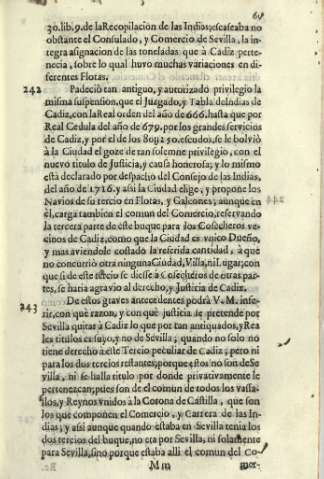 61
30. lib. 9. de la Recopilacion de las Indias; escaseaba no
obstante el Consulado, y Comercio de Sevilla, la in-
tegra asignacion de las toneladas que à Cadiz perte-
necia, sobre lo qual huvo muchas variaciones en di-
ferentes Flotas.
242 Padeciò tan antiguo, y autorizado privilegio la
misma suspension, que el Juzgado, y Tabla de Indias de
Cadiz, con la Real orden del año de 666. hasta que por
Real Cedula del año de 679. por los grandes servicios
de Cadiz, y por el de los 80y2 50. escudos, se le bolviò
à la Ciudad el goze de tan solemne privilegio, con el
nuevo titulo de Justicia, y causa honerosa; y lo mismo
està declarado por despacho del Consejo de las Indias,
del año de 1716. y assi la Ciudad elige, y propone los
Navios de su tercio en Flotas, y Galeones; aunque en
èl, carga tambien el comun del Comercio, reservando
la tercera parte de este buque para los Cosecheros ve-
cinos de Cadiz, como que la Ciudad es vnico Dueño,
y mas aviendole costado la referida cantidad, à que
no concurriò otra ninguna Ciudad, Villa, ni Lugar; con
que si de este tercio se diesse à Cosecheros de otras par-
tes, se haria agravio al derecho, y Justicia de Cadiz.
243 De estos graves antecedentes podrà V. M. infe-
rir, con què razon, y con què justicia se pretende por
Sevilla quitar à Cadiz lo que por tan antiquados, y Rea
les titulos es suyo, y no de Sevilla; quando no solo no
tiene derecho à este Tercio peculiar de Cadiz; pero ni
para los dos tercios restantes, porque estos no son de Se
villa, ni se halla titulo por donde privativamente le
pertenezcan; pues son de el comun de todos los vassa-
llos, y Reynos vnidos à la Corona de Castilla, que son
los que componen el Comercio, y Carrera de las In-
dias, y assi aunque quando estaba en Sevilla tenia los
dos tercios del buque, no era por Sevilla, ni solamente
para Sevilla, sino porque estaba alli el comun del Co-
Mm mer-